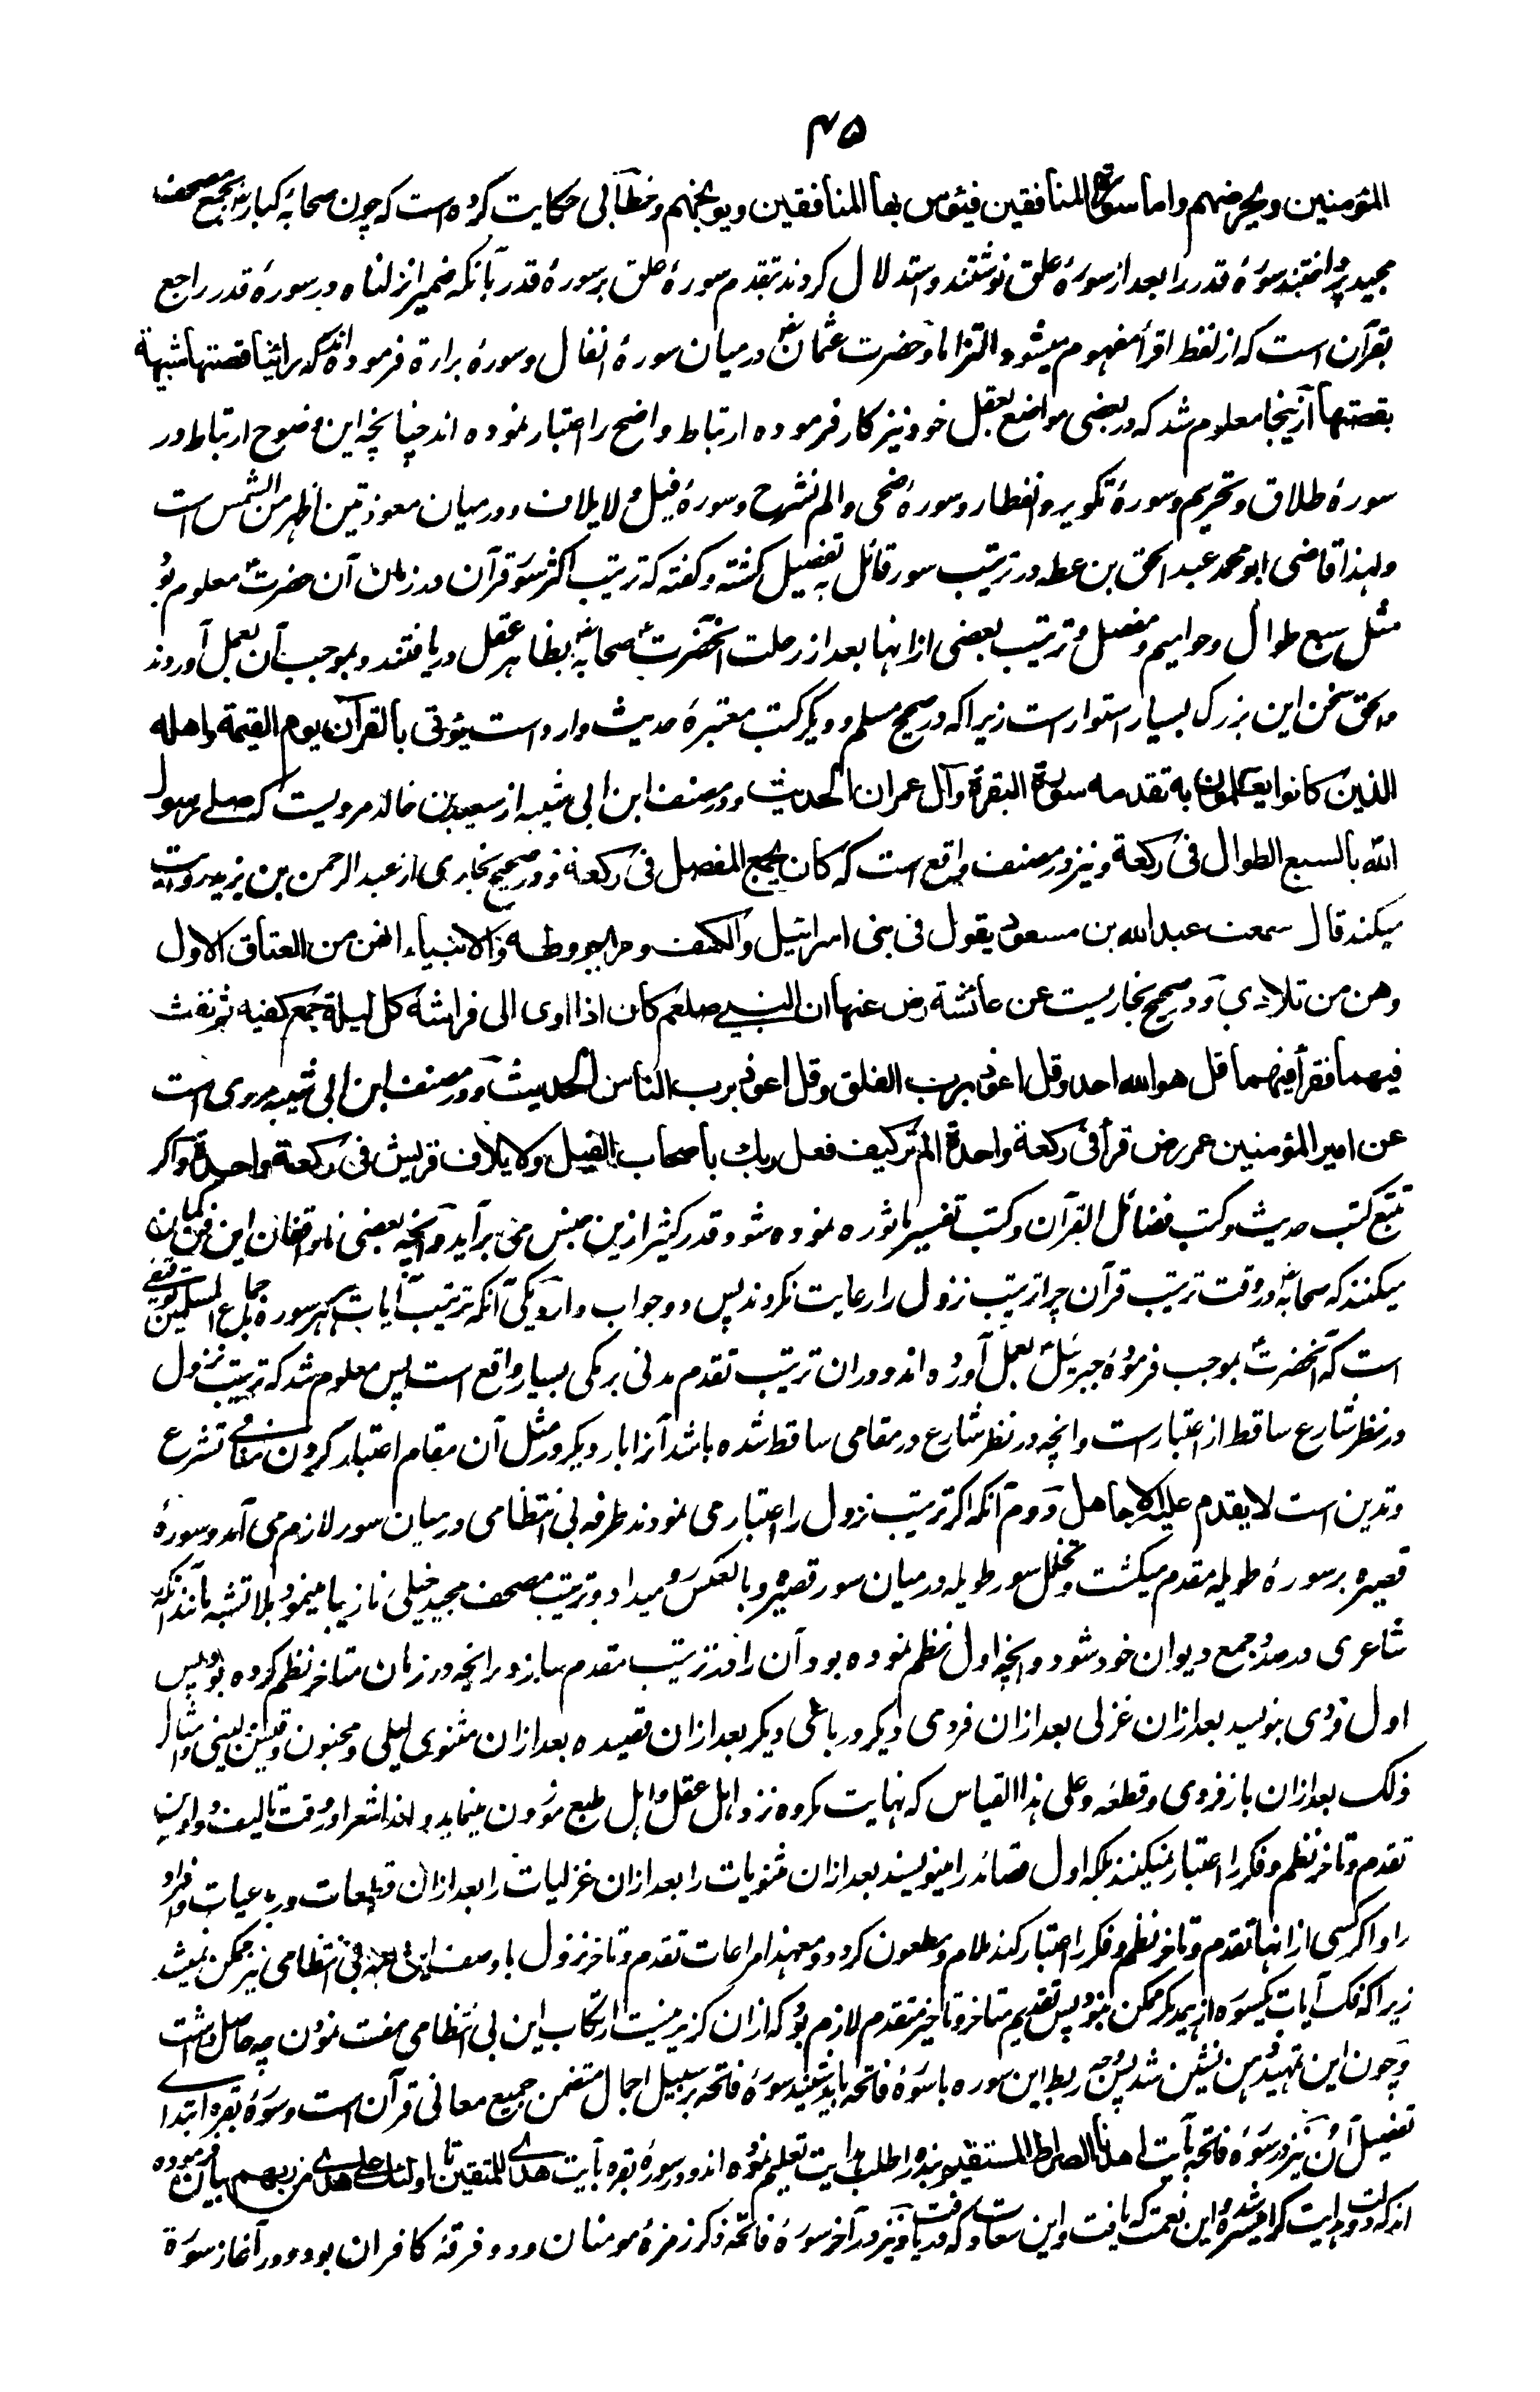 ۴۵
المؤمنین ویحرضهم واما سورة المنافقین فیئوس بها المنافقین ویوبخهم وخطابی حکایت کرده است که چون صحابهٔ کبار بجمع مصحف
مجید پرداختند سورهٔ قدر را بعد از سورهٔ علق نوشتند و استدلال کردند بتقدم سورهٔ علق بر سورهٔ قدر بآنکه ضمیر انزلناه در سورهٔ قدر راجع
بقرآن است که از لفظ اقرأ مفهوم میشود التزاما و حضرت عثمان رض درمیان سورهٔ انفال و سورهٔ براءة فرموده اند که رائینا قصتها شبیهة
بقصتها ازینجا معلوم شد که در بعضی مواضع بعقل خود نیز کار فرموده ارتباط واضح را اعتبار نموده اند چنانچه این وضوح ارتباط در
سورهٔ طلاق و تحریم و سورهٔ تکویر و انفطار و سورهٔ ضحی و الم نشرح و سورهٔ فیل و لایلاف و درمیان معوذتین اظهر من الشمس است
ولهذا قاضی ابو محمد عبد الحق بن عطیه در ترتیب سور قائل به تفصیل گشته و گفته که ترتیب اکثر سور قرآن در زمان آن حضرت معلوم بود
مثل سبع طوال و حوامیم و مفصل و ترتیب بعضی ازانها بعد از رحلت آنحضرت صحابه بظاهر عقل دریافتند و بموجب آن بعمل آوردند
والحق سخن این بزرگ بسیار استوار است زیرا که در صحیح مسلم و دیگر کتب معتبرهٔ حدیث وارد است یؤتی بالقرآن یوم القیمة واهله
الذین کانوا یعملون به تقدمه سورة البقرة وآل عمران الحدیث و در مصنف ابن ابی شیبه از سعید بن خالد مرویست که صلے رسول
الله بالسبع الطوال فی رکعة و نیز در مصنف واقع است که کان یجمع المفصل فی رکعة و در صحیح بخاری از عبد الرحمن بن یزید روایت
میکند قال سمعت عبد الله بن مسعود یقول فی بنی اسرائیل والکهف ومریم وطه والانبیاء انهن من العتاق الاول
وهن من تلادی و در صحیح بخاریست عن عائشة رض عنها ان النبی صلعم کان اذا اوی الی فراشه کل لیلة جمع کفیه ثم نفث
فیهما فقرأ فیهما قل هو الله احد وقل اعوذ برب الفلق وقل اعوذ برب الناس الحدیث و در مصنف ابن ابی شیبه مروی است
عن امیر المؤمنین عمر رض قرأ فی رکعة واحدة الم تر کیف فعل ربك باصحاب الفیل ولایلاف قریش فی رکعة واحدة واگر
تتبع کتب حدیث و کتب فضائل القرآن و کتب تفسیر ماثوره نموده شود قدر کثیر ازین جنس می برآید و آنچه بعضی ناواقفان این فن گمان
میکنند که صحابه در وقت ترتیب قرآن چرا ترتیب نزول را رعایت نکردند پس دو جواب دارد یکی آنکه ترتیب آیات هر سوره باجماع المسلمین توقیفی
است که آنحضرت بموجب فرمودهٔ جبرئیل بعمل آورده اند و دران ترتیب تقدم مدنی بر مکی بسیار واقع است پس معلوم شد که ترتیب نزول
در نظر شارع ساقط از اعتبار است و آنچه در نظر شارع در مقامی ساقط شده باشد آنرا بار دیگر در مثل آن مقام اعتبار کردن منافی تشرع
و تدین است لا یقدم علیه الا جاهل دوم آنکه اگر ترتیب نزول را اعتبار می نمودند طرفه بی انتظامی درمیان سور لازم می آمد و سورهٔ
قصیره بر سورهٔ طویله مقدم میگشت و تخلل سور طویله درمیان سور قصیره و بالعکس رو میداد و ترتیب مصحف مجید خیلی نازیبا مینمود بلا تشبیه مانند آنکه
شاعری درصدد جمع دیوان خود شود و آنچه اول نظم نموده بود آن را در ترتیب مقدم سازد و آنچه در زمان متاخر نظم کرده بود پس
اول فردی بنویسد بعد ازان غزلی بعد ازان فردی دیگر و رباعی دیگر بعد ازان قصیده بعد ازان مثنوی لیلی و مجنون و امثال
ذلک بعد ازان باز فردی و قطعه و علی هذا القیاس که نهایت مکروه نزد اهل عقل و اهل طبع موزون مینماید ولهذا شعرا در وقت تالیف دواوین
تقدم و تاخر نظم و فکر را اعتبار نمیکنند بلکه اول قصائد را مینویسند بعد ازان مثنویات را بعد ازان غزلیات را بعد ازان قطعات و رباعیات و افراد
را و اگر کسی ازانها تقدم و تاخر نظم و فکر را اعتبار کند ملام و مطعون گردد و معهذا مراعات تقدم و تاخر نزول باوصف این بی انتظامی نیز ممکن نمیشد
زیرا که فک آیات یکسوره از یکدیگر ممکن نبود پس تقدیم متاخر و تاخیر متقدم لازم بود که ازان گزیر نیست ارتکاب این بی انتظامی مفت نمودن چه حاصل داشت
و چون این تمهید ذهن نشین شد پس وجه ربط این سوره با سورهٔ فاتحه باید شنید سورهٔ فاتحه بر سبیل اجمال متضمن جمیع معانی قرآن است و سورهٔ بقره ابتدای
تفصیل آن و نیز در سورهٔ فاتحه بآیت اهدنا الصراط المستقیم بنده را طلب هدایت تعلیم نموده اند و در سورهٔ بقره بآیت هدی للمتقین تا اولئك علی هدی من ربهم بیان فرموده
اند که دولت هدایت کرا میسر شده و این نعمت که یافت و این سعادت که دریافت و نیز در آخر سورهٔ فاتحه ذکر زمرهٔ مومنان و دو فرقهٔ کافران بود و در آغاز سورة